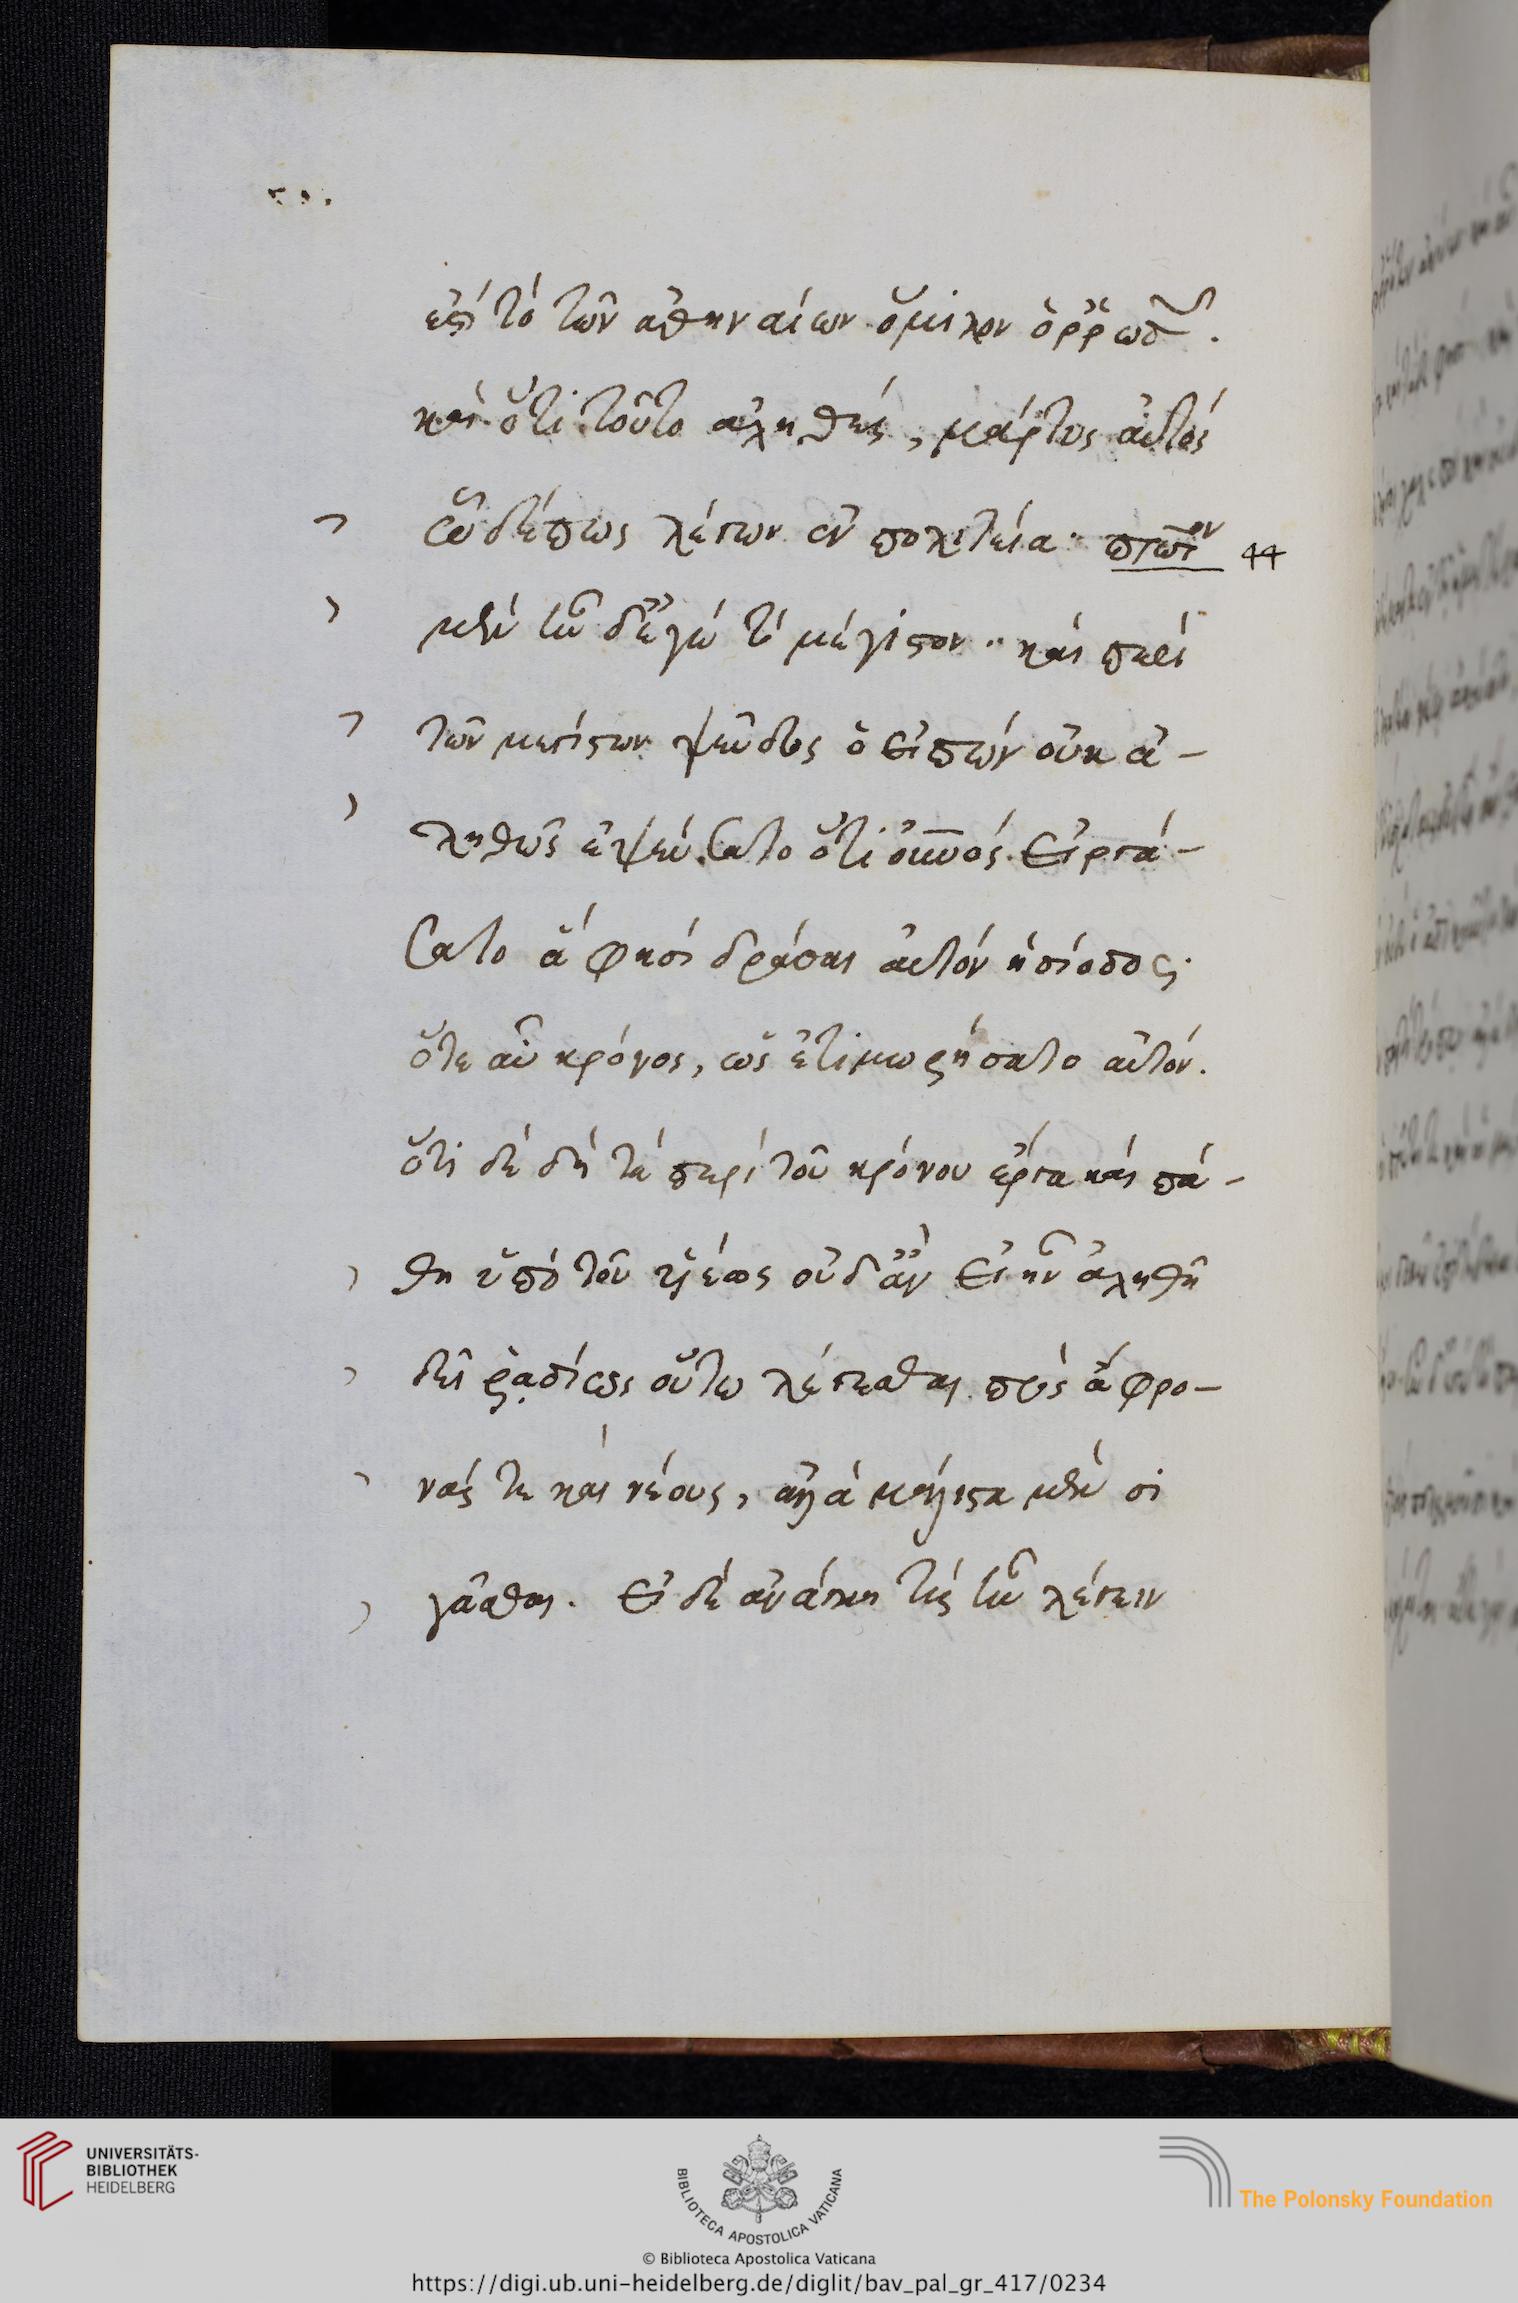 ἐστὶ τὸ τῶν ἀθηναίων ὅμιλον ὀρρωδ
καὶ ὅτι τοῦτο ἀληθὲς, μάρτυς αὐτὸς
ὧδέ πως λέγων ἐν πολιτεία· πρῶτον 44
μὲν τὸ δἔγὼ τὸ μέγιστον· καὶ περὶ
τῶν μεγίστων ψεῦδος ὁ εἰπὼν οὐκ ἀ-
ληθῶς ἐψεύσατο ὅτι οὐνος εἰργά-
σατο ἅ φησι δρᾶσαι αὐτὸν ἡσίοδος·
ὅτε αὖ κρόνος, ὡς ἐτιμωρήσατο αὐτόν.
ὅτι δὲ δὴ τὰ περὶ τοῦ κρόνου ἔργα καὶ πά-
θη ὑπὸ τοῦ υἱέως οὐδ' ἂν εἰ ἦν ἀληθῆ
δεῖ ῥαδίως οὕτω λέγεσθαι πρὸς ἄφρο-
νάς τε καὶ νέους, ἀλλὰ μάλιστα μὲν σι
γᾶσθαι. εἰ δὲ ἀνάγκη τις ἦν λέγειν
UNIVERSITÄTS-
BIBLIOTHEK
HEIDELBERG
BIBLIOTECA APOSTOLICA VATICANA
The Polonsky Foundation
© Biblioteca Apostolica Vaticana
https://digi.ub.uni-heidelberg.de/diglit/bav_pal_gr_417/0234